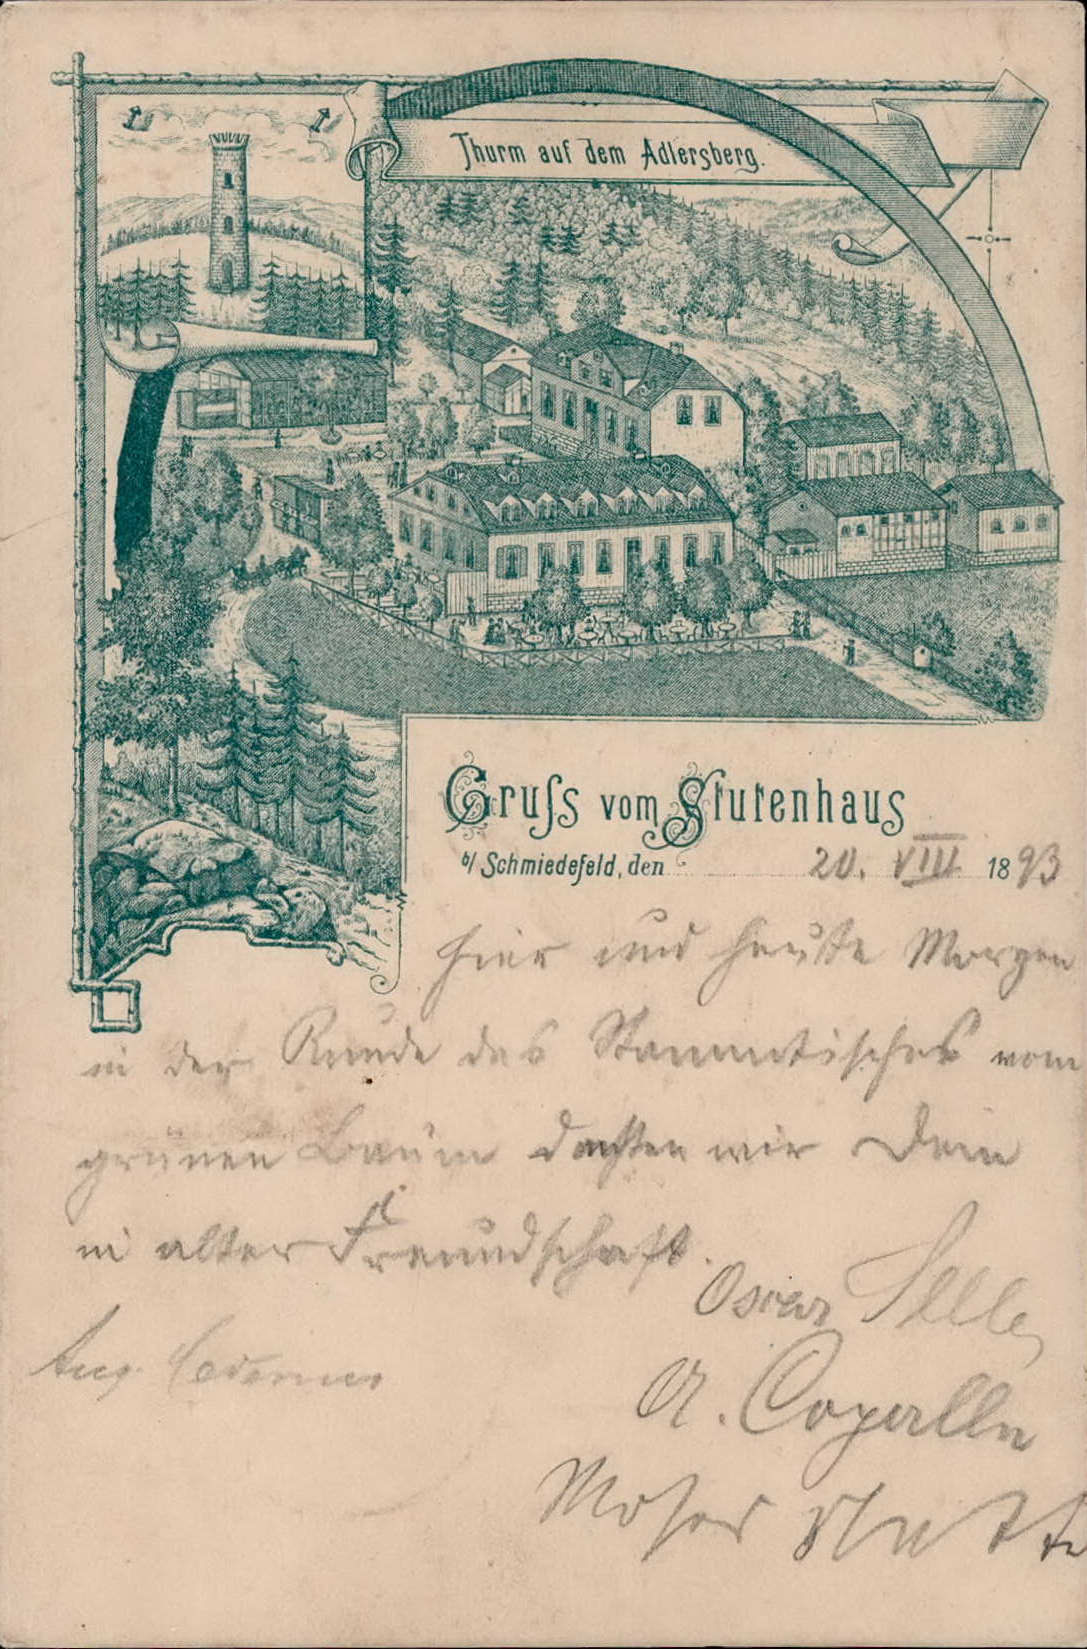 Thurm auf dem Adlersberg.
Gruss vom Stutenhaus
b/ Schmiedefeld, den 20. VIII 1893
Hier und heute Morgen
in der Runde des Stammtisches vom
grünen Baum dachten wir Dein
in alter Freundschaft.
Oscar
Aug.
A.
Moser